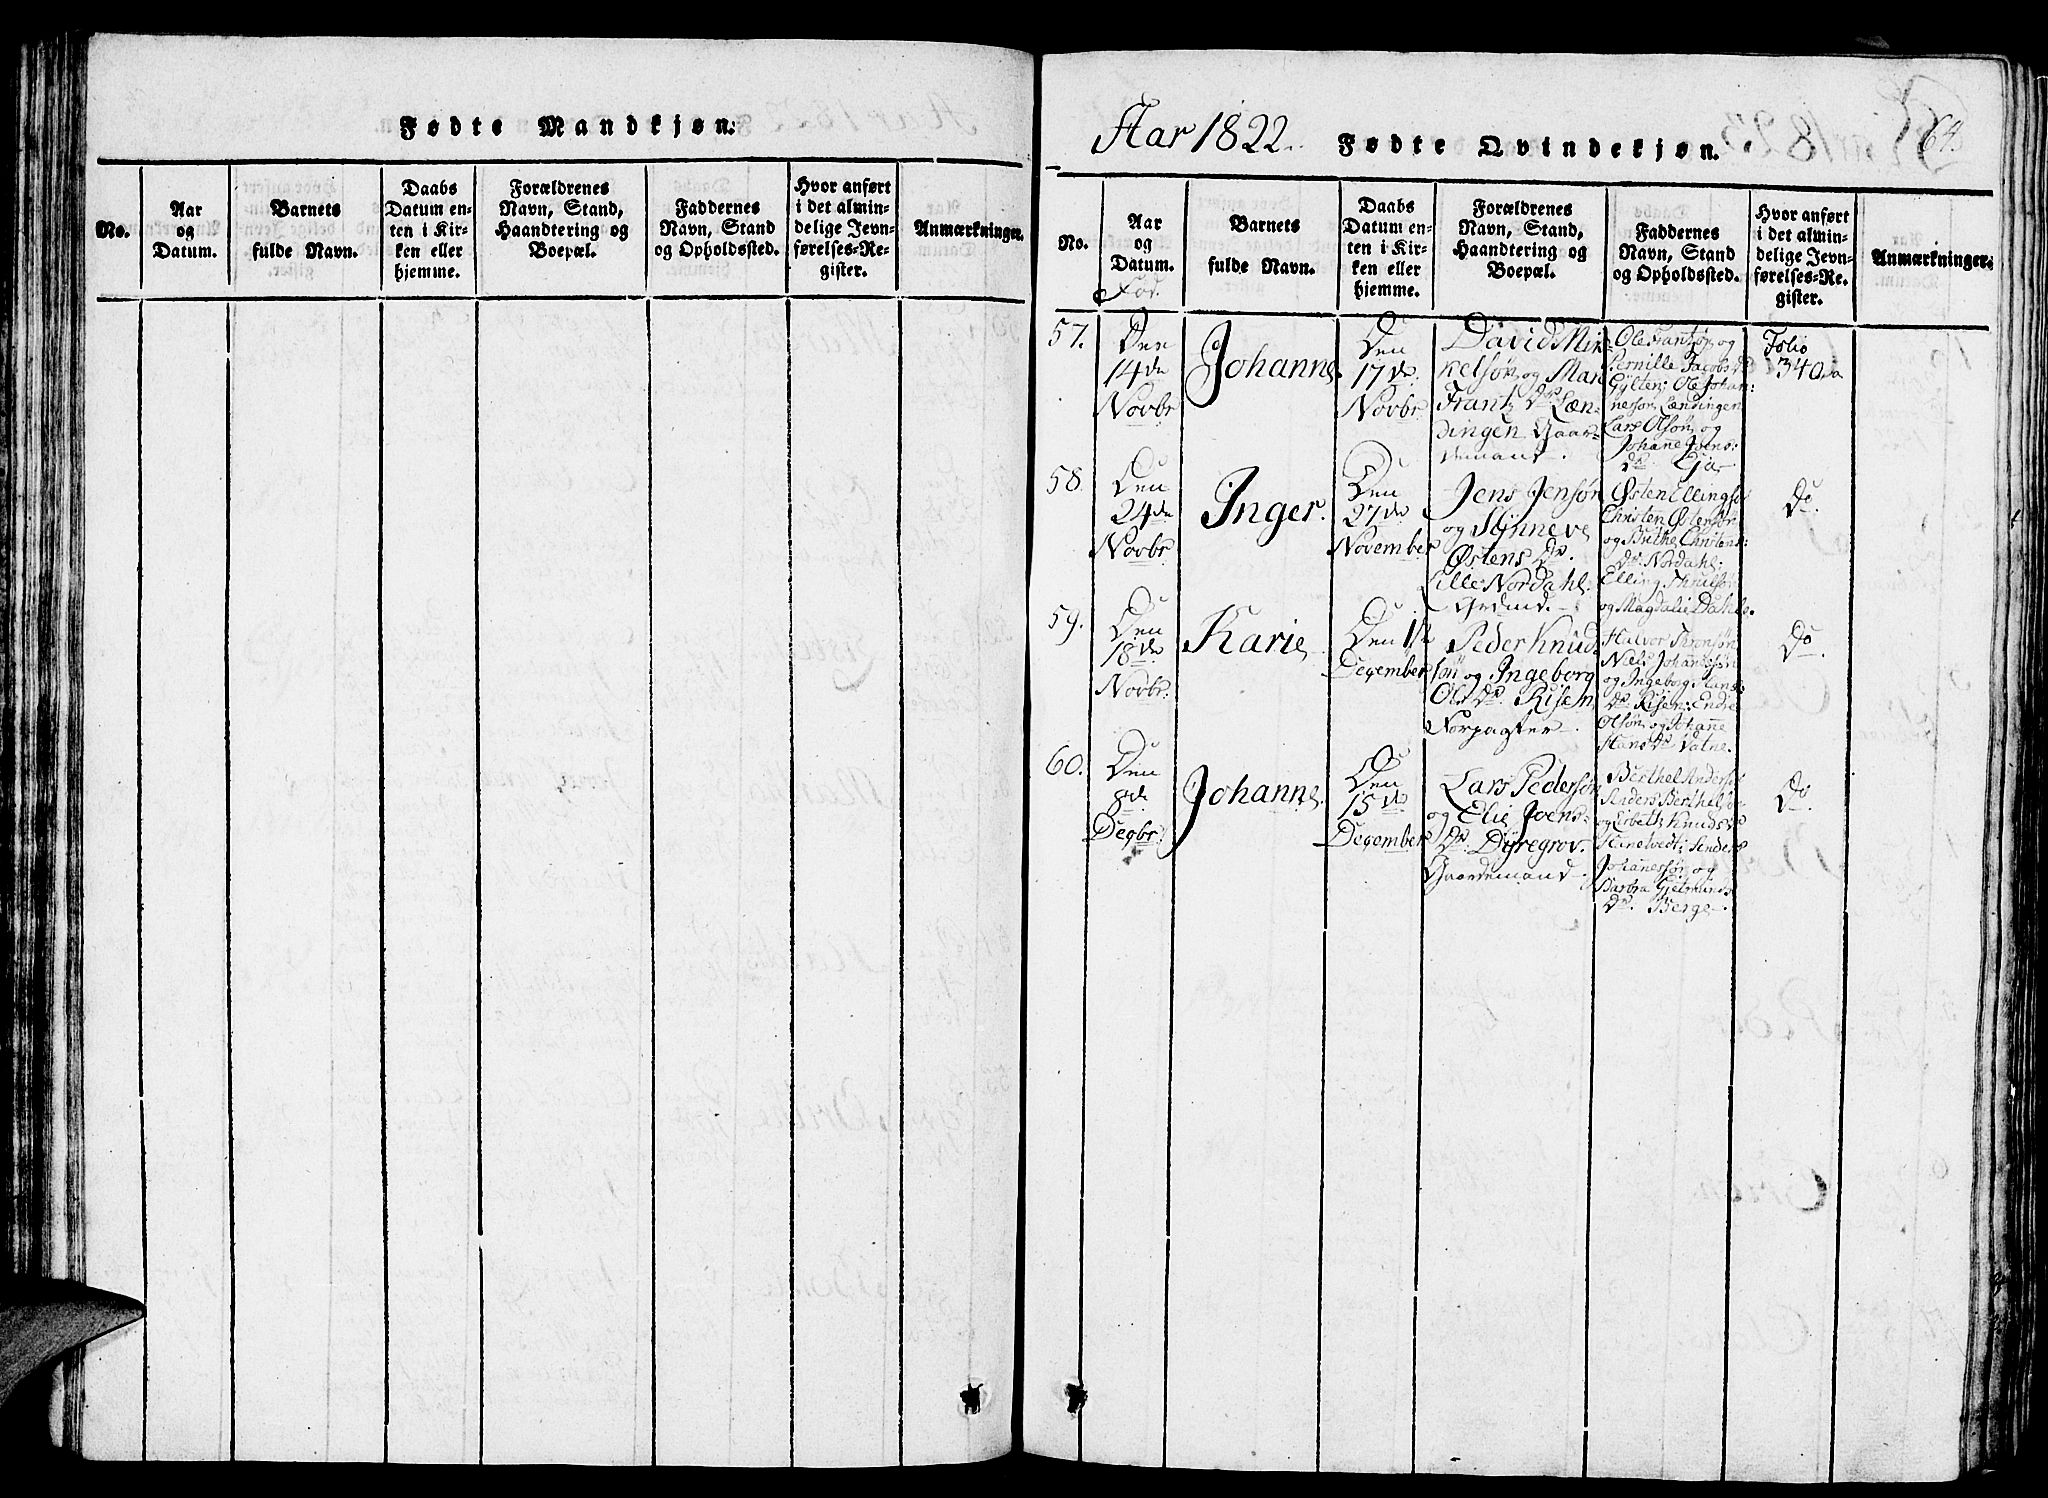 Fødte Mandkjøn.
No.
Aar
og
Datum.
Barnets
fulde Navn.
Daabs
Datum en-
ten i Kir-
ken eller
hjemme.
Forældrenes
Navn, Stand,
Haandtering og
Boepæl.
Faddernes
Navn, Stand
og Opholdssted.
Hvor anført
i det almin-
delige Jevn-
førelses-Re-
gister.
Anmærkninger.
Aar 1822. Fødte Qvindekjøn. 64
No.
Aar
og
Datum.
Fød.
Barnets
fulde Navn.
Daabs
Datum en-
ten i Kir-
ken eller
hjemme.
Forældrenes
Navn, Stand,
Haandtering og
Boepæl.
Faddernes
Navn, Stand
og Opholdssted.
Hvor anført
i det almin-
delige Jevn-
førelses-Re-
gister.
Anmærkninger.
57.
Den
14de
Novbr
Johanne.
Den
17de
Novbr
David Mik
kelsøn og Mari
Frantz Dr. Læn-
dingen Gaar-
demand.
Ole Frantsøn og
Pernille Jacobs dr
Gylten; Ole Johan-
nessøn Lændingen
Lars Olsøn og
Johane Joens-
dr. Gjø
Folio
340
58.
Den
24de
Novbr
Inger.
Den
27de
November
Jens Jensøn
og Synneve
Østens Dr.
Lille Nordahl.
Østen Ellingsø
Christen Østensøn
og Brithe Christens-
dr. Nordahl;
Elling
og Magdalie Dahle.
Do.
59.
Den
18de
Novbr.
Karie
Den 1ste
December
Peder Knud
søn og Ingeborg
Ols Dr. Risen
Norpagter.
Halvor
Niels Johannesøn
og Ingeborg Hans
Dr. Risen; Endre
Olsøn og Johanne
Hans Dr Vatne.
Do.
60.
Den
8de
Decbr.
Johanne.
Den
15de
December
Lars Pedersøn
og Elie Joens-
Dr. Dyregrov.
Gaardemand.
Berthel Andersø
Anders Berthelsøn
og Lisbeth Knuds dr
Johannessøn og
Barbra
Dr. Berge.
Do.